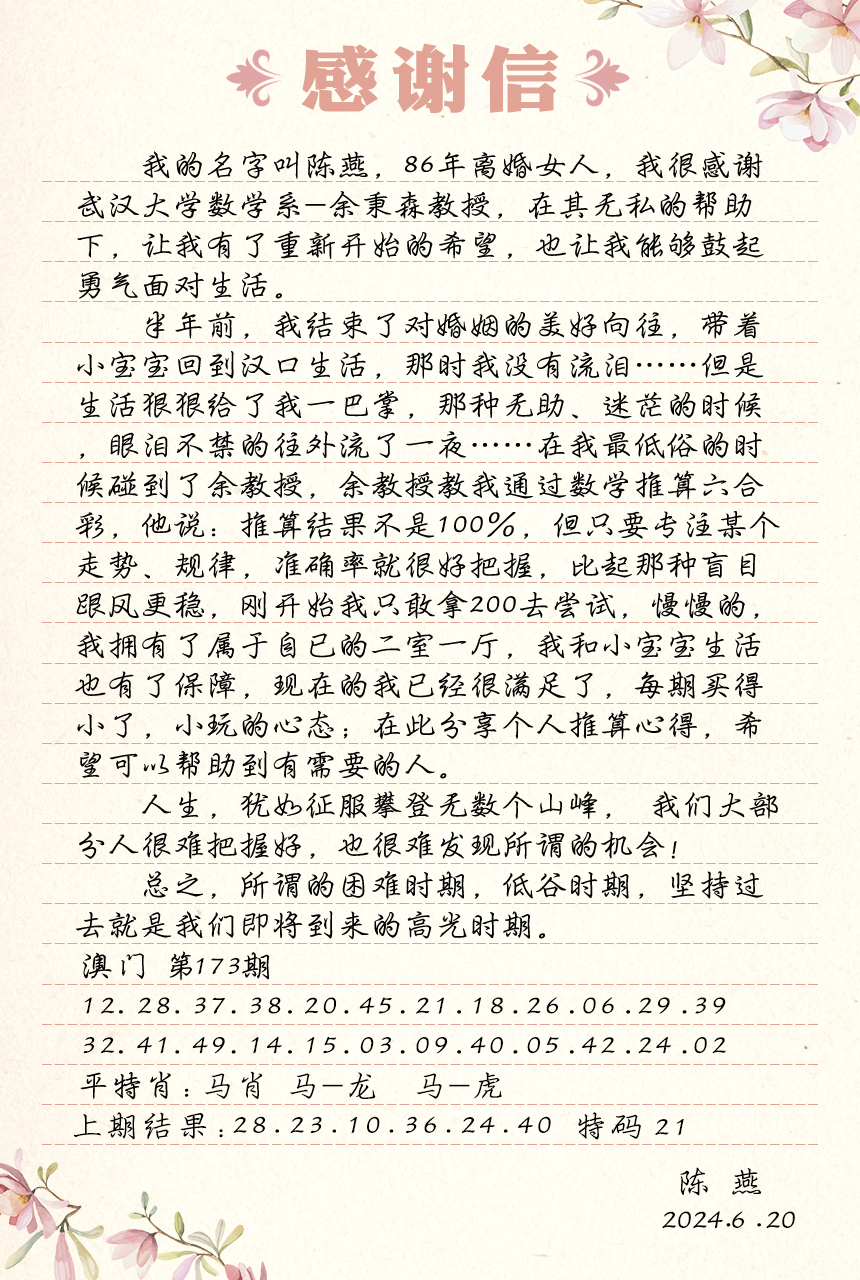 感谢信
我的名字叫陈燕，86年离婚女人，我很感谢
武汉大学数学系—余秉森教授，在其无私的帮助
下，让我有了重新开始的希望，也让我能够鼓起
勇气面对生活。
半年前，我结束了对婚姻的美好向往，带着
小宝宝回到汉口生活，那时我没有流泪……但是
生活狠狠给了我一巴掌，那种无助、迷茫的时候
，眼泪不禁的往外流了一夜……在我最低俗的时
候碰到了余教授，余教授教我通过数学推算六合
彩，他说：推算结果不是100%，但只要专注某个
走势、规律，准确率就很好把握，比起那种盲目
跟风更稳，刚开始我只敢拿200去尝试，慢慢的，
我拥有了属于自已的二室一厅，我和小宝宝生活
也有了保障，现在的我已经很满足了，每期买得
小了，小玩的心态；在此分享个人推算心得，希
望可以帮助到有需要的人。
人生，犹如征服攀登无数个山峰， 我们大部
分人很难把握好，也很难发现所谓的机会！
总之，所谓的困难时期，低谷时期，坚持过
去就是我们即将到来的高光时期。
澳门 第173期
12.28.37.38.20.45.21.18.26.06.29.39
32.41.49.14.15.03.09.40.05.42.24.02
平特肖：马肖 马—龙 马—虎
上期结果：28.23.10.36.24.40 特码 21
陈 燕
2024.6.20